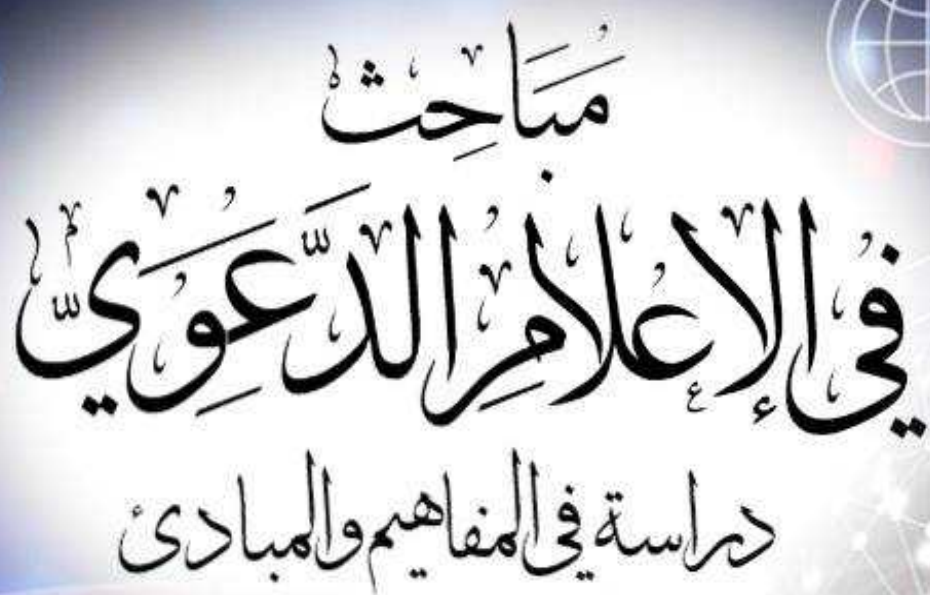 مَبَاحِث
فِي الإِعلَامِ الدَّعَوِيّ
دراسة في المفاهيم والمبادئ